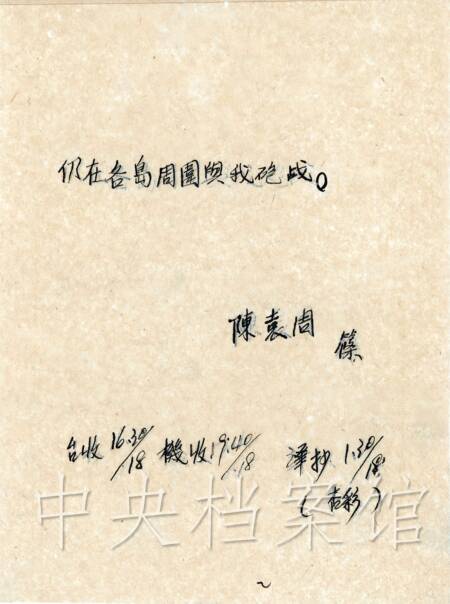 仍在各島周圍與我砲战。
陳袁周
篠
台收16.30/18 機收19.40/18 譯抄1.30/18
(杏彩)
中央档案馆
2